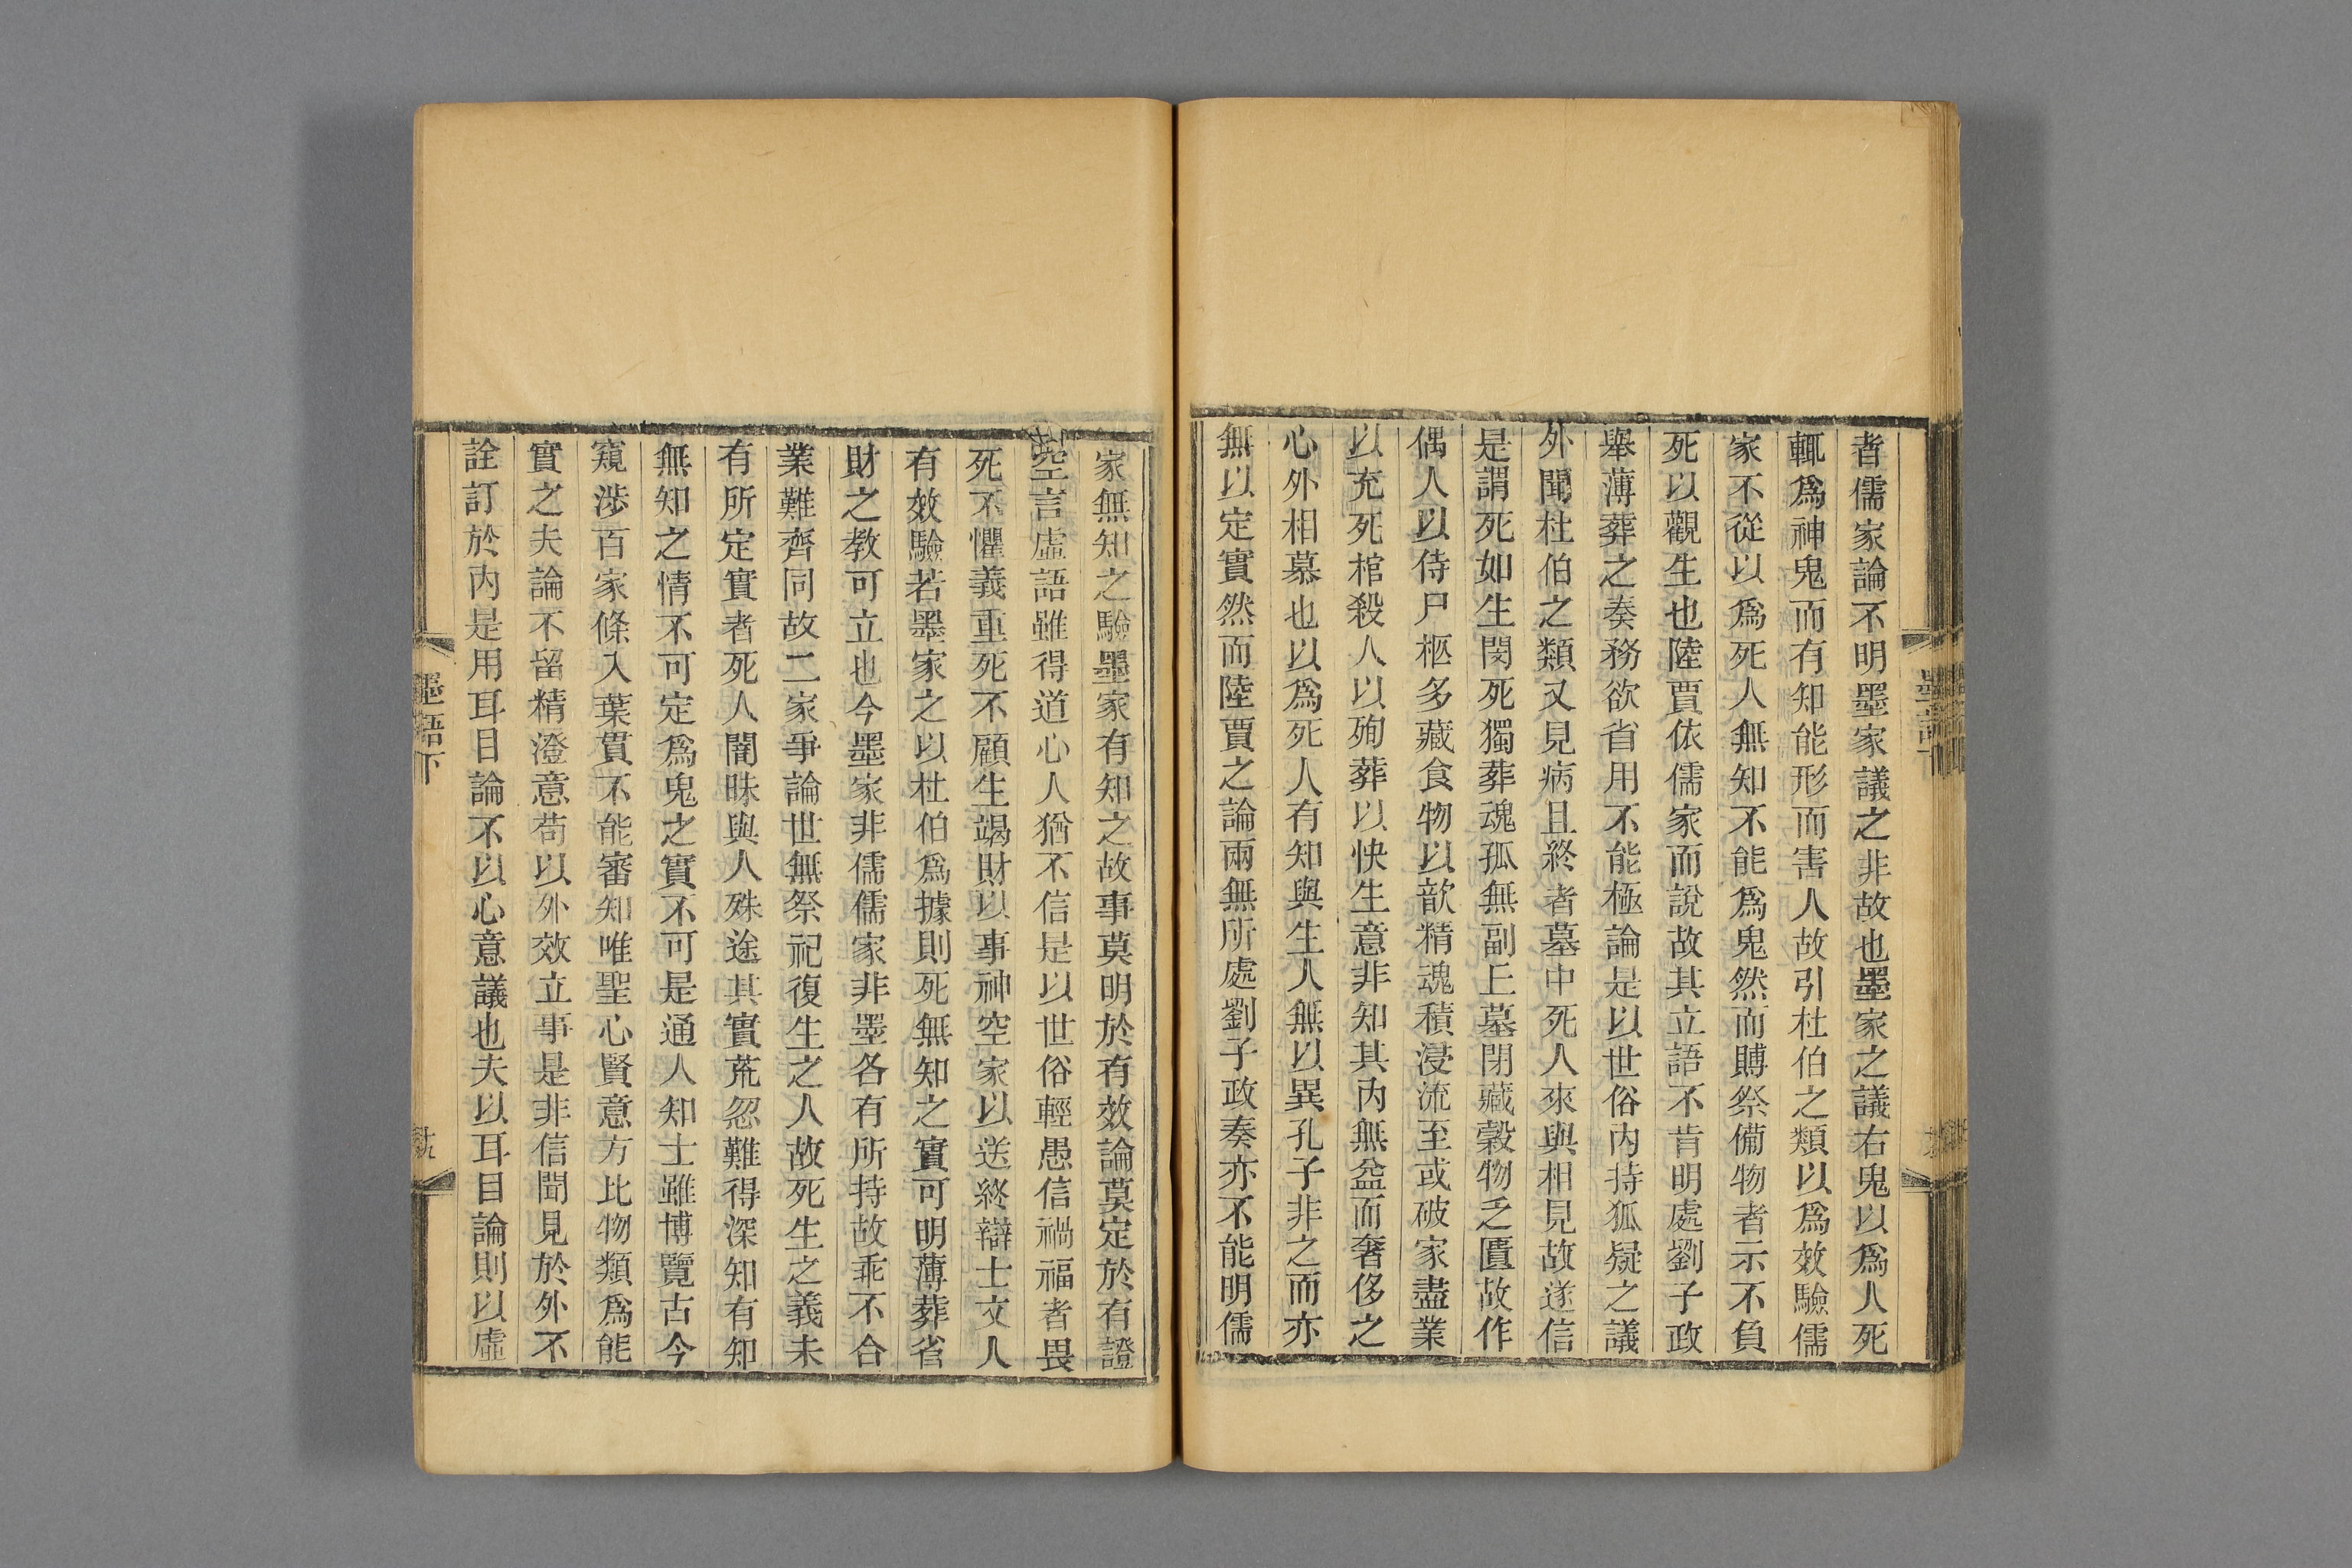 者儒家論不明墨家議之非故也墨家之議右鬼以爲人死
輒爲神鬼而有知能形而害人故引杜伯之類以爲效驗儒
家不從以爲死人無知不能爲鬼然而賻祭備物者示不負
死以觀生也陸賈依儒家而說故其立語不肯明處劉子政
舉薄葬之奏務欲省用不能極論是以世俗內持狐疑之議
外聞杜伯之類又見病且終者墓中死人來與相見故遂信
是謂死如生閔死獨葬魂孤無副丘墓閉藏穀物乏匱故作
偶人以侍尸柩多藏食物以歆精魂積浸流至或破家盡業
以充死棺殺人以殉葬以快生意非知其內無益而奢侈之
心外相慕也以爲死人有知與生人無以異孔子非之而亦
無以定實然而陸賈之論兩無所處劉子政奏亦不能明儒
家無知之驗墨家有知之故事莫明於有效論莫定於有證
空言虛語雖得道心人猶不信是以世俗輕愚信禍福者畏
死不懼義重死不顧生竭財以事神空家以送終辯士文人
有效驗若墨家之以杜伯爲據則死無知之實可明薄葬省
財之教可立也今墨家非儒儒家非墨各有所持故乖不合
業難齊同故二家爭論世無祭祀復生之人故死生之義未
有所定實者死人闇昧與人殊途其實荒忽難得深知有知
無知之情不可定爲鬼之實不可是通人知士雖博覽古今
窺涉百家條入葉貫不能審知唯聖心賢意方比物類爲能
實之夫論不留精澄意苟以外效立事是非信聞見於外不
詮訂於內是用耳目論不以心意議也夫以耳目論則以虛
墨語下